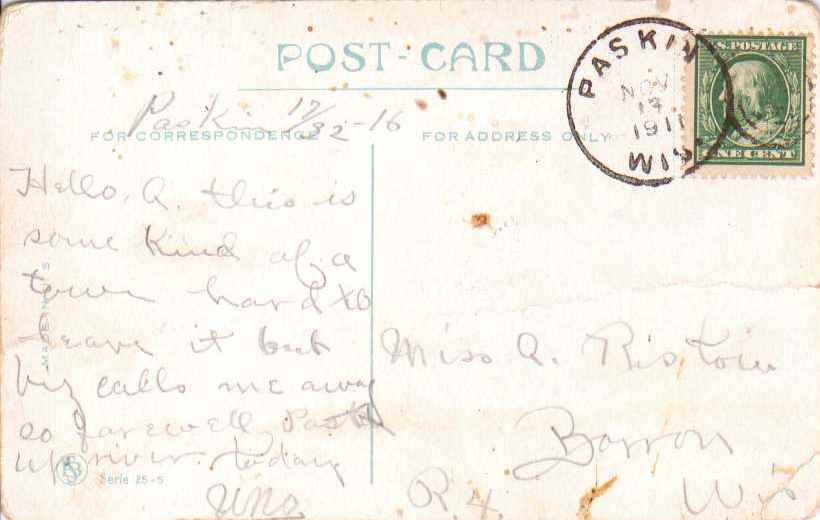 POST-CARD
PASKIN
NOV
17
1911
WIS.
U.S. POSTAGE
ONE CENT
Paskin
FOR CORRESPONDENCE
FOR ADDRESS ONLY
Hello, A. this is
some kind of a
town hard to
leave it but
biz calls me away
so farewell
up river today
Uno
Miss A. Ristow
Barron
R. 4. Wis
Serie 25-5